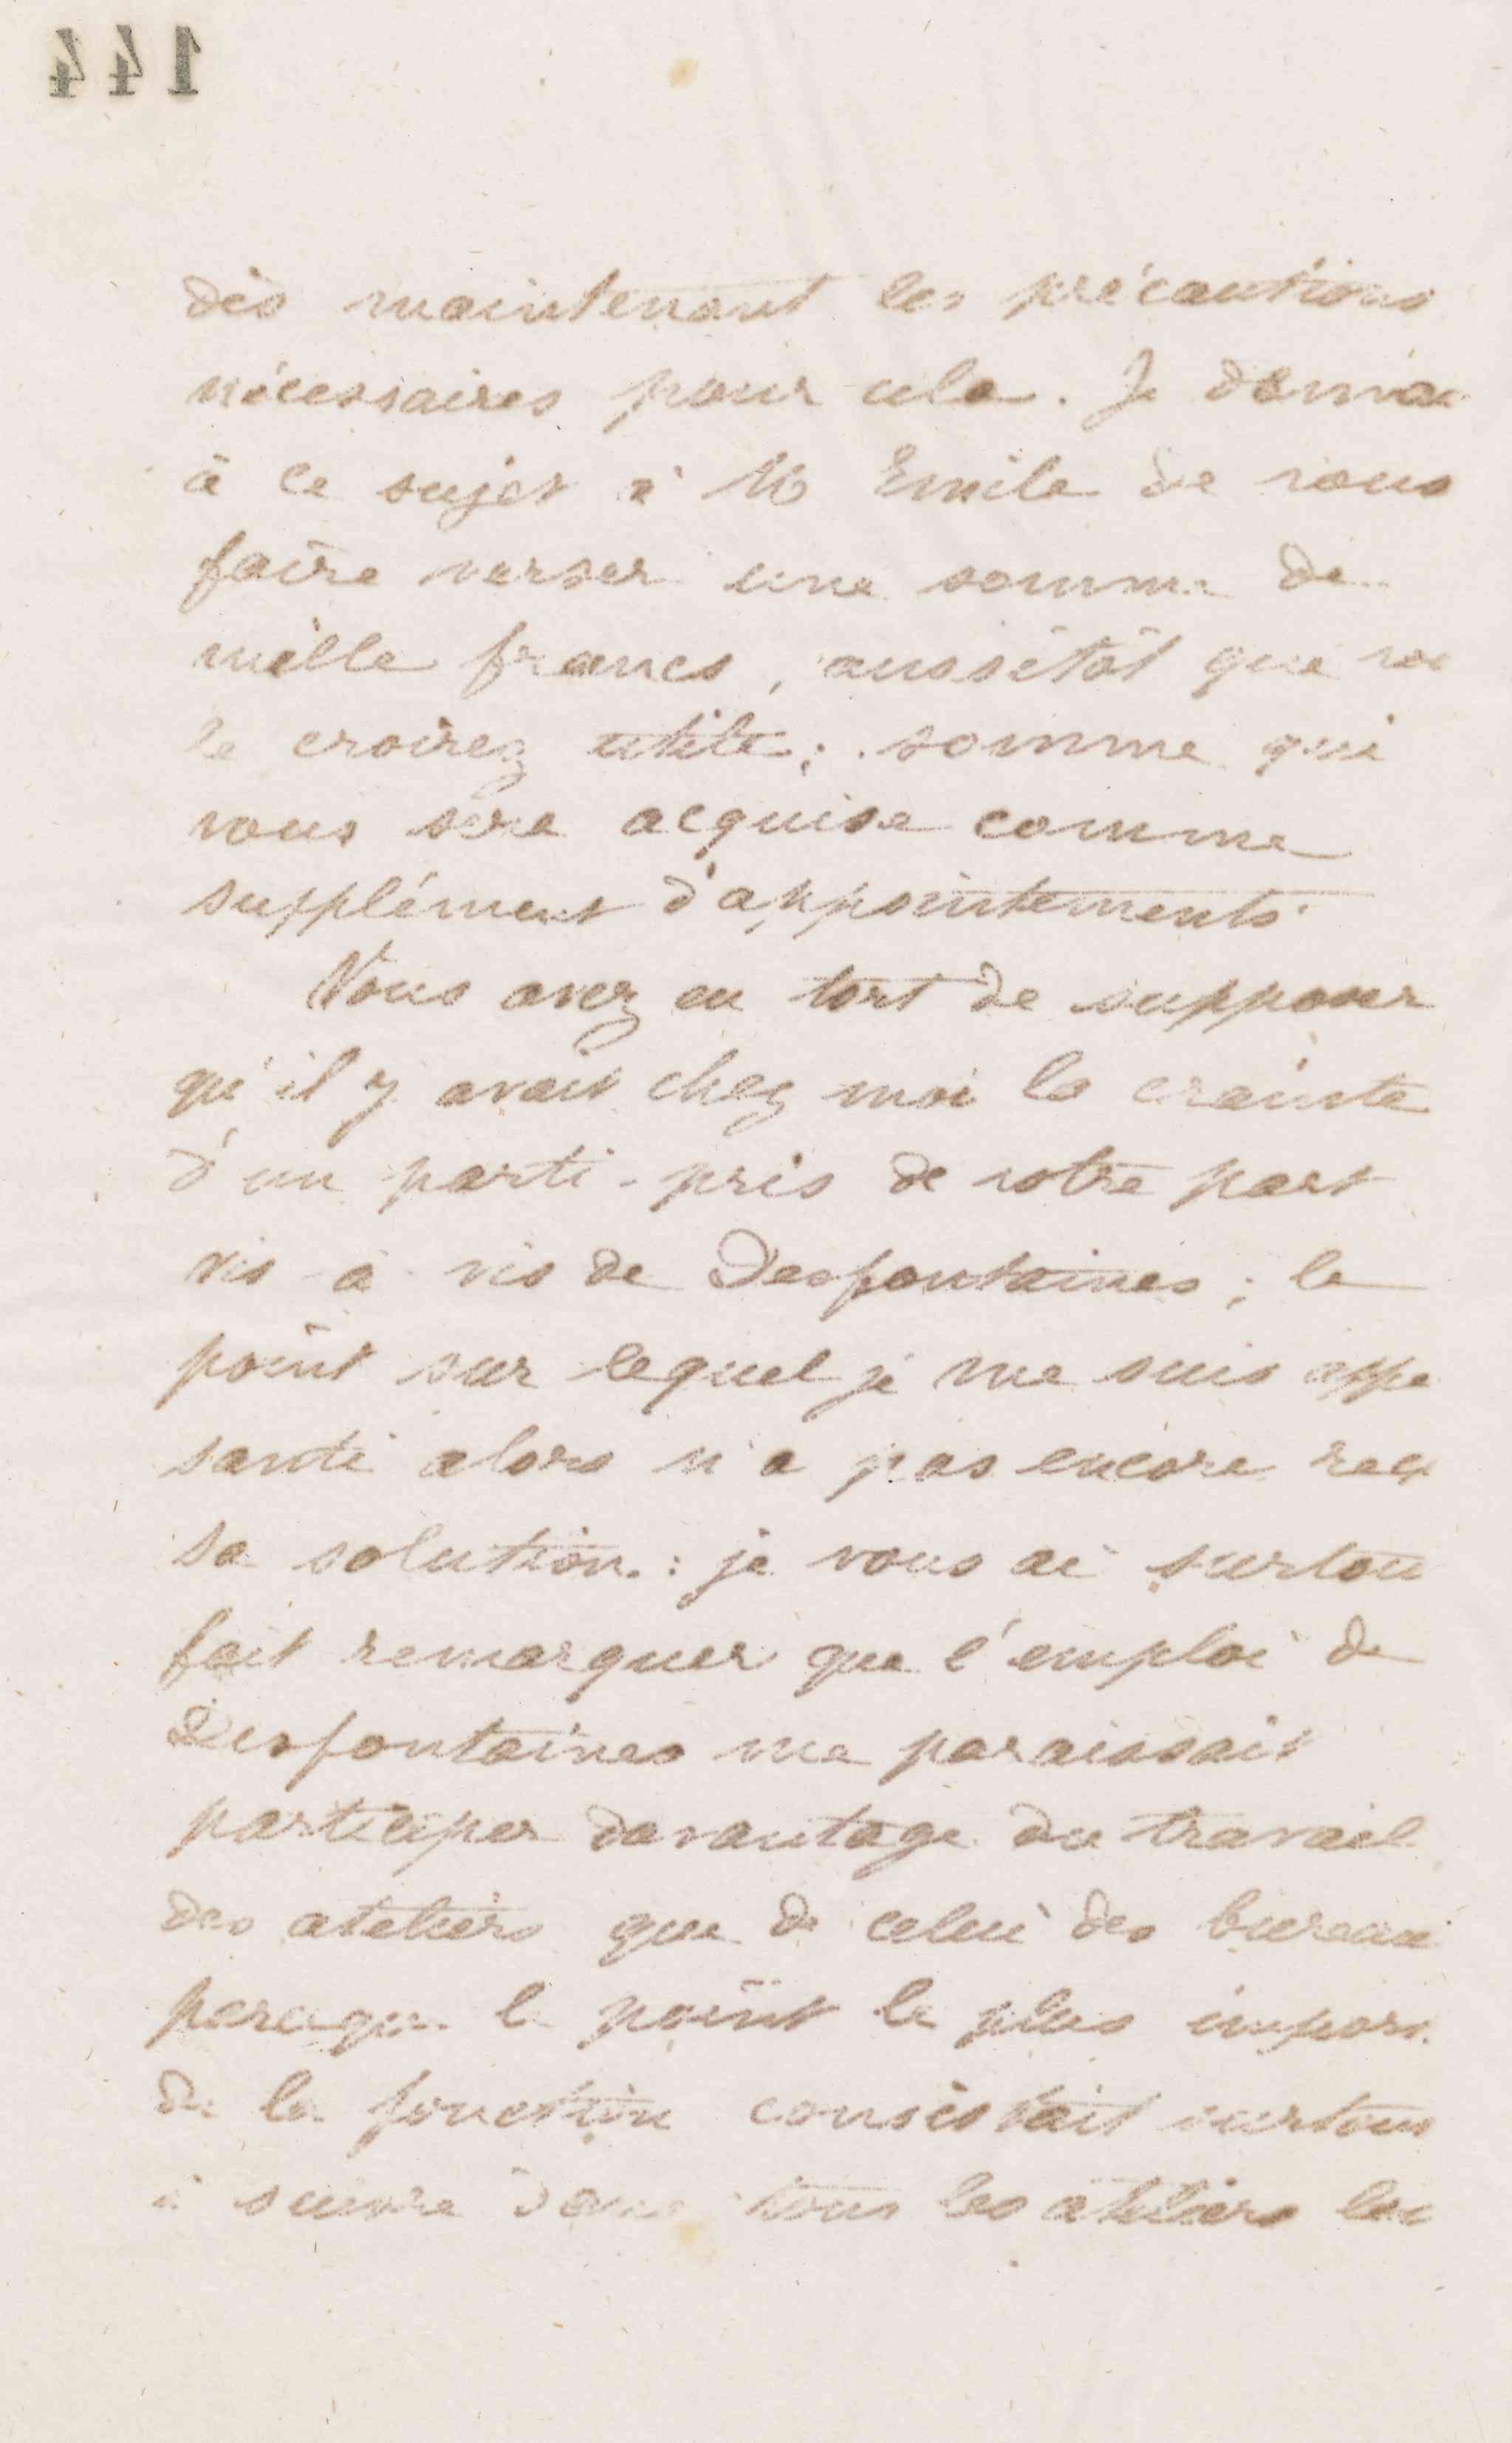 144
dès maintenant les précautions
nécessaires pour cela. Je deman
à ce sujet à M Emile de vous
faire verser une somme de
mille francs, aussitôt que vou
le croirez utile; somme qui
vous sera acquise comme
supplément d'appointements.
Vous avez eu tort de supposer
qu'il y avait chez moi la crainte
d'un parti-pris de votre part
vis à vis de Desfontaines; le
point sur lequel je me suis appe
santi alors n'a pas encore reçu
sa solution: je vous ai surtou
fait remarquer que l'emploi de
Desfontaines me paraissait
participer davantage du travail
des ateliers que de celui des bureau
parceque le point le plus impor
de la fonction consistait surtout
à suivre dans tous les ateliers les